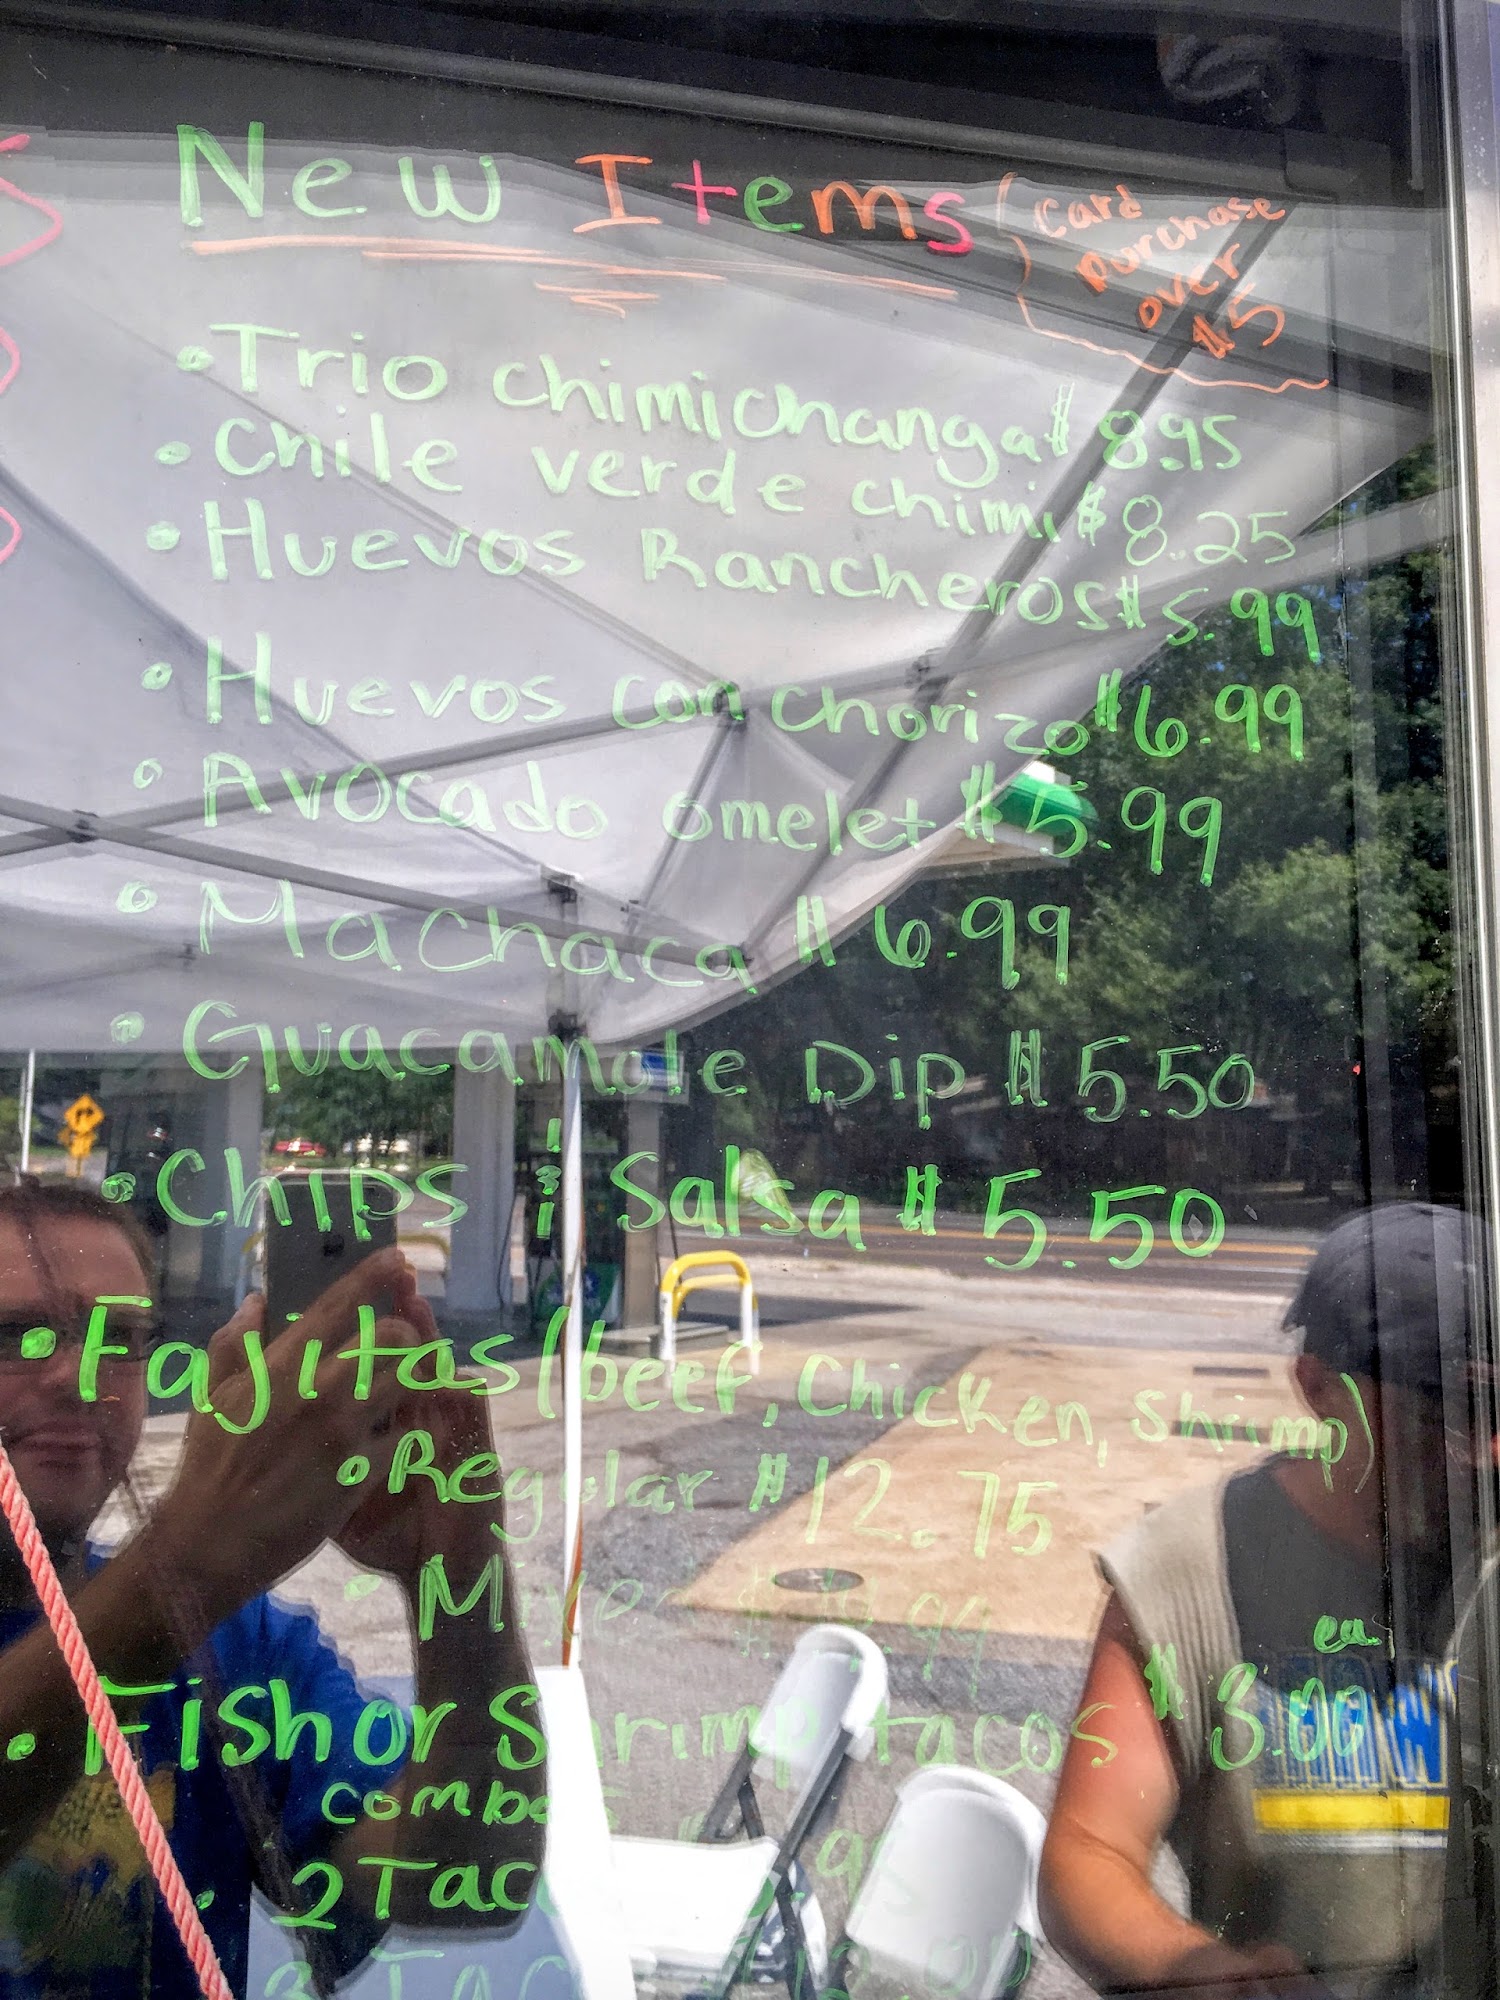 New Items
(Card
purchase
over
$5
• Trio chimichanga $ 8.95
• Chile verde chimi $ 8.25
• Huevos Rancheros $ 5.99
• Huevos con chorizo $ 6.99
• Avocado omelet $ 5.99
• Machaca $ 6.99
• Guacamole Dip $ 5.50
• Chips & Salsa $ 5.50
• Fajitas (beef, Chicken, Shrimp)
• Regular $ 12.75
• Mixed $
• Fish or Shrimp tacos $ 3.00 ea
combos
• 2 Tacos
3 Tacos